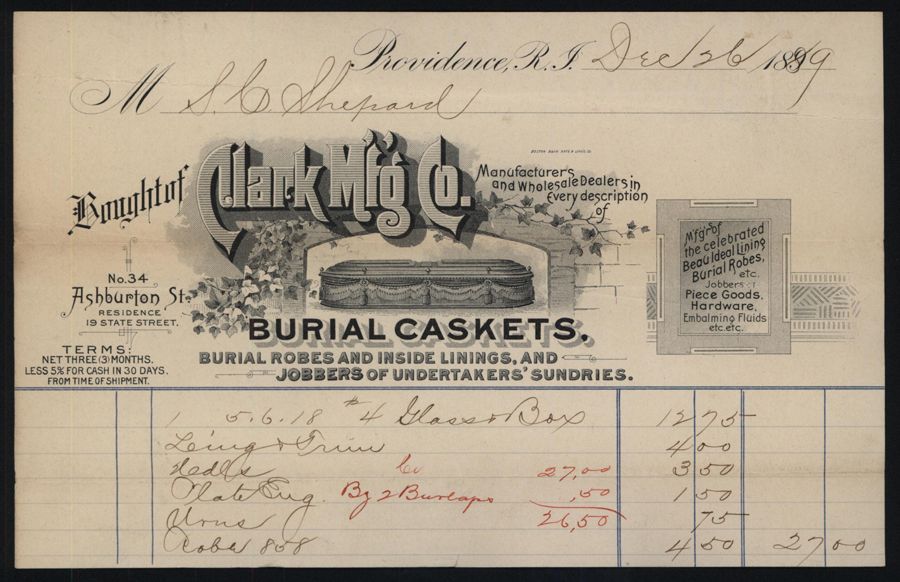 Providence, R.I. Dec 26 1899
M S. C. Shepard
Bought of
Clark M'f'g Co.
Manufacturers
and Wholesale Dealers in
Every description
of
No. 34
Ashburton St.
RESIDENCE
19 STATE STREET.
TERMS:
NET THREE (3) MONTHS.
LESS 5% FOR CASH IN 30 DAYS.
FROM TIME OF SHIPMENT.
BURIAL CASKETS.
BURIAL ROBES AND INSIDE LININGS, AND
JOBBERS OF UNDERTAKERS' SUNDRIES.
Mfgr of
the celebrated
Beau Ideal Lining
Burial Robes,
etc.
Jobbers of
Piece Goods,
Hardware,
Embalming Fluids
etc. etc.
1 5.6.18 #4 Glass & Box 12 75
Ling & Trim 4 00
Hdls Cr 27,00 3 50
Plate Eng. By 2 Burlaps ,50 1 50
Urns 26,50 75
Robe 858 4 50 27 00